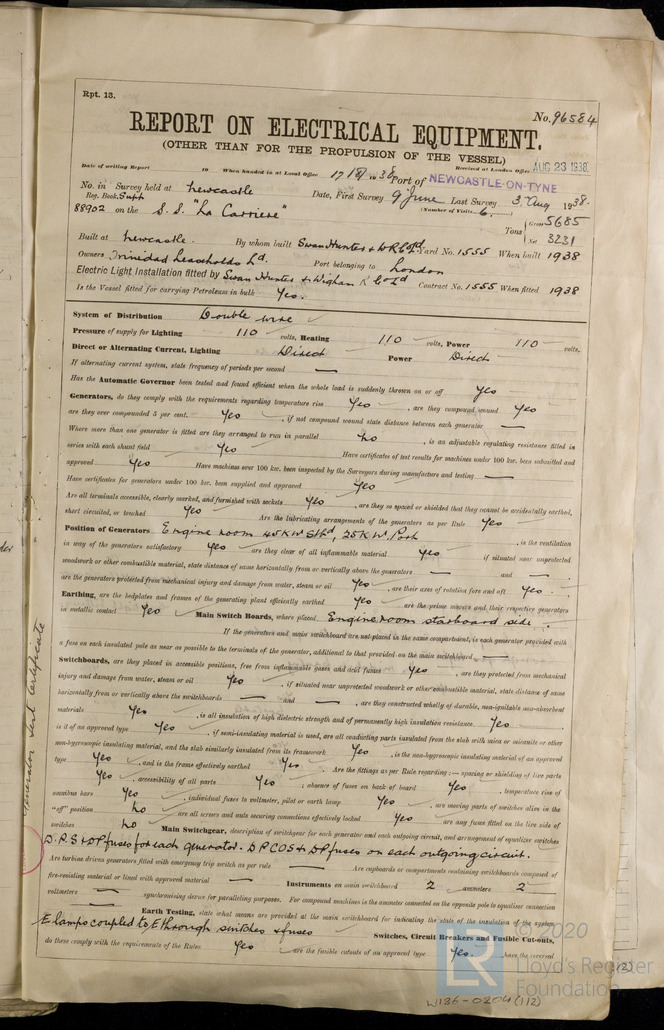 Rpt. 13.
No. 96584
REPORT ON ELECTRICAL EQUIPMENT.
(OTHER THAN FOR THE PROPULSION OF THE VESSEL)
Date of writing Report 19 When handed in at Local Office 17/8/1938 Port of NEWCASTLE-ON-TYNE Received at London Office AUG 23 1938
No. in Survey held at Newcastle Date, First Survey 9 June Last Survey 3 Aug 1938
Reg. Book. Supp (Number of Visits 6.)
88902 on the S.S. "La Carriere" Tons Gross 5685 Net 3231
Built at Newcastle. By whom built Swan Hunter & W R Co Ld Yard No. 1555 When built 1938
Owners Trinidad Leaseholds Ld. Port belonging to London
Electric Light Installation fitted by Swan Hunter & Wigham R Co Ld Contract No. 1555 When fitted 1938
Is the Vessel fitted for carrying Petroleum in bulk Yes.
System of Distribution Double wire
Pressure of supply for Lighting 110 volts, Heating 110 volts, Power 110 volts.
Direct or Alternating Current, Lighting Direct Power Direct
If alternating current system, state frequency of periods per second —
Has the Automatic Governor been tested and found efficient when the whole load is suddenly thrown on or off Yes
Generators, do they comply with the requirements regarding temperature rise Yes, are they compound wound Yes
are they over compounded 5 per cent. Yes, if not compound wound state distance between each generator —
Where more than one generator is fitted are they arranged to run in parallel No, is an adjustable regulating resistance fitted in
series with each shunt field Yes Have certificates of test results for machines under 100 kw. been submitted and
approved Yes Have machines over 100 kw. been inspected by the Surveyors during manufacture and testing —
Have certificates for generators under 100 kw. been supplied and approved Yes
Are all terminals accessible, clearly marked, and furnished with sockets Yes, are they so spaced or shielded that they cannot be accidentally earthed,
short circuited, or touched Yes Are the lubricating arrangements of the generators as per Rule Yes
Position of Generators Engine room 45KW Stbd, 25KW. Port, is the ventilation
in way of the generators satisfactory Yes are they clear of all inflammable material Yes if situated near unprotected
woodwork or other combustible material, state distance of same horizontally from or vertically above the generators — and —
are the generators protected from mechanical injury and damage from water, steam or oil Yes, are their axes of rotation fore and aft Yes
Earthing, are the bedplates and frames of the generating plant efficiently earthed Yes are the prime movers and their respective generators
in metallic contact Yes Main Switch Boards, where placed Engine room starboard side.
If the generators and main switchboard are not placed in the same compartment, is each generator provided with
a fuse on each insulated pole as near as possible to the terminals of the generator, additional to that provided on the main switchboard —
Switchboards, are they placed in accessible positions, free from inflammable gases and acid fumes Yes, are they protected from mechanical
injury and damage from water, steam or oil Yes, if situated near unprotected woodwork or other combustible material, state distance of same
horizontally from or vertically above the switchboards — and —, are they constructed wholly of durable, non-ignitable non-absorbent
materials Yes, is all insulation of high dielectric strength and of permanently high insulation resistance Yes,
is it of an approved type Yes, if semi-insulating material is used, are all conducting parts insulated from the slab with mica or micanite or other
non-hygroscopic insulating material, and the slab similarly insulated from its framework Yes, is the non-hygroscopic insulating material of an approved
type Yes, and is the frame effectively earthed Yes. Are the fittings as per Rule regarding:— spacing or shielding of live parts
Yes, accessibility of all parts Yes, absence of fuses on back of board Yes, temperature rise of
omnibus bars Yes, individual fuses to voltmeter, pilot or earth lamp Yes, are moving parts of switches alive in the
"off" position No are all screws and nuts securing connections effectively locked Yes are any fuses fitted on the live side of
switches No Main Switchgear, description of switchgear for each generator and each outgoing circuit, and arrangement of equaliser switches
D.P.S & DP fuses for each generator. D P C O S & DP fuses on each outgoing circuit.
Are turbine driven generators fitted with emergency trip switch as per rule — Are cupboards or compartments containing switchboards composed of
fire-resisting material or lined with approved material — Instruments on main switchboard 2 ammeters 2
voltmeters — synchronising device for paralleling purposes. For compound machines is the ammeter connected on the opposite pole to equaliser connection
— Earth Testing, state what means are provided at the main switchboard for indicating the state of the insulation of the system
E lamps coupled to E through switches & fuses Switches, Circuit Breakers and Fusible Cut-outs,
do these comply with the requirements of the Rules Yes are the fusible cutouts of an approved type Yes. have the reversed
Generator Test Certificate
© 2020
Lloyd's Register
Foundation
W136-0204 (1/2)